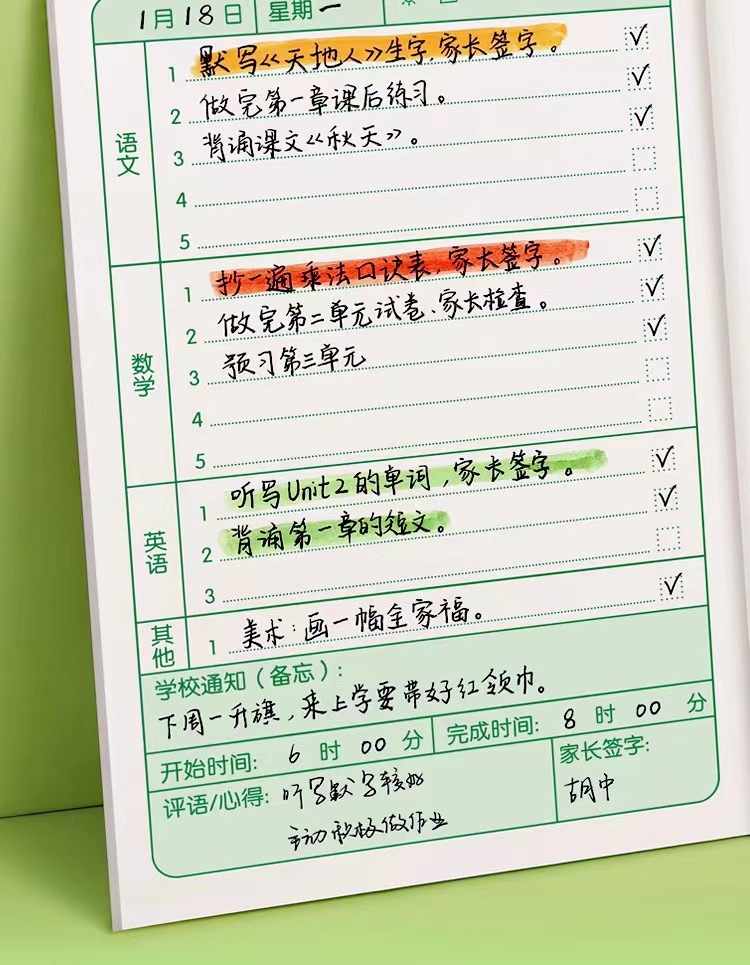 1月18日 星期一
语文
1 默写《天地人》生字,家长签字。 ✓
2 做完第一章课后练习。 ✓
3 背诵课文《秋天》。 ✓
4
5
数学
1 抄一遍乘法口诀表,家长签字。 ✓
2 做完第二单元试卷、家长检查。 ✓
3 预习第三单元 ✓
4
5
英语
1 听写Unit2的单词,家长签字。 ✓
2 背诵第一章的短文。 ✓
3
其他
1 美术:画一幅全家福。 ✓
学校通知(备忘):
下周一升旗,来上学要带好红领巾。
开始时间: 6 时 00 分 完成时间: 8 时 00 分
评语/心得: 听写默写较好
主动积极做作业
家长签字:
胡中